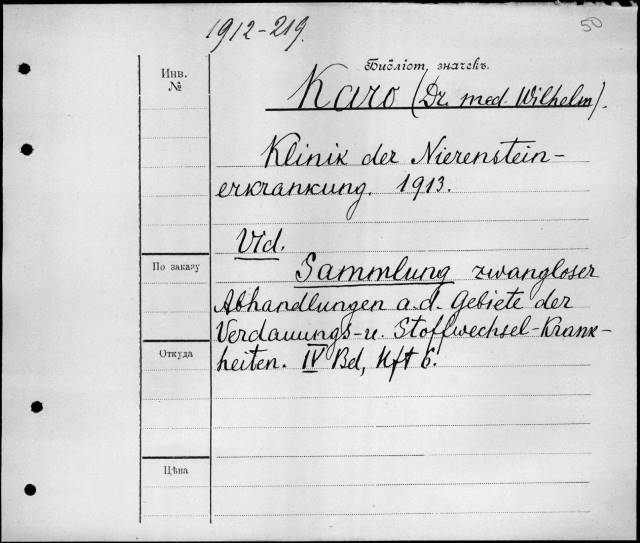 1912-219.
50
Библіот. значекъ.
Инв.
№
Karo (Dr. med. Wilhelm).
Klinik der Nierenstein-
erkrankung. 1913.
Vid.
По заказу
Sammlung zwangloser
Abhandlungen a.d. Gebiete der
Verdauungs-u. Stoffwechsel-Krank-
Откуда
heiten. IV Bd, Hft 6.
Цѣна